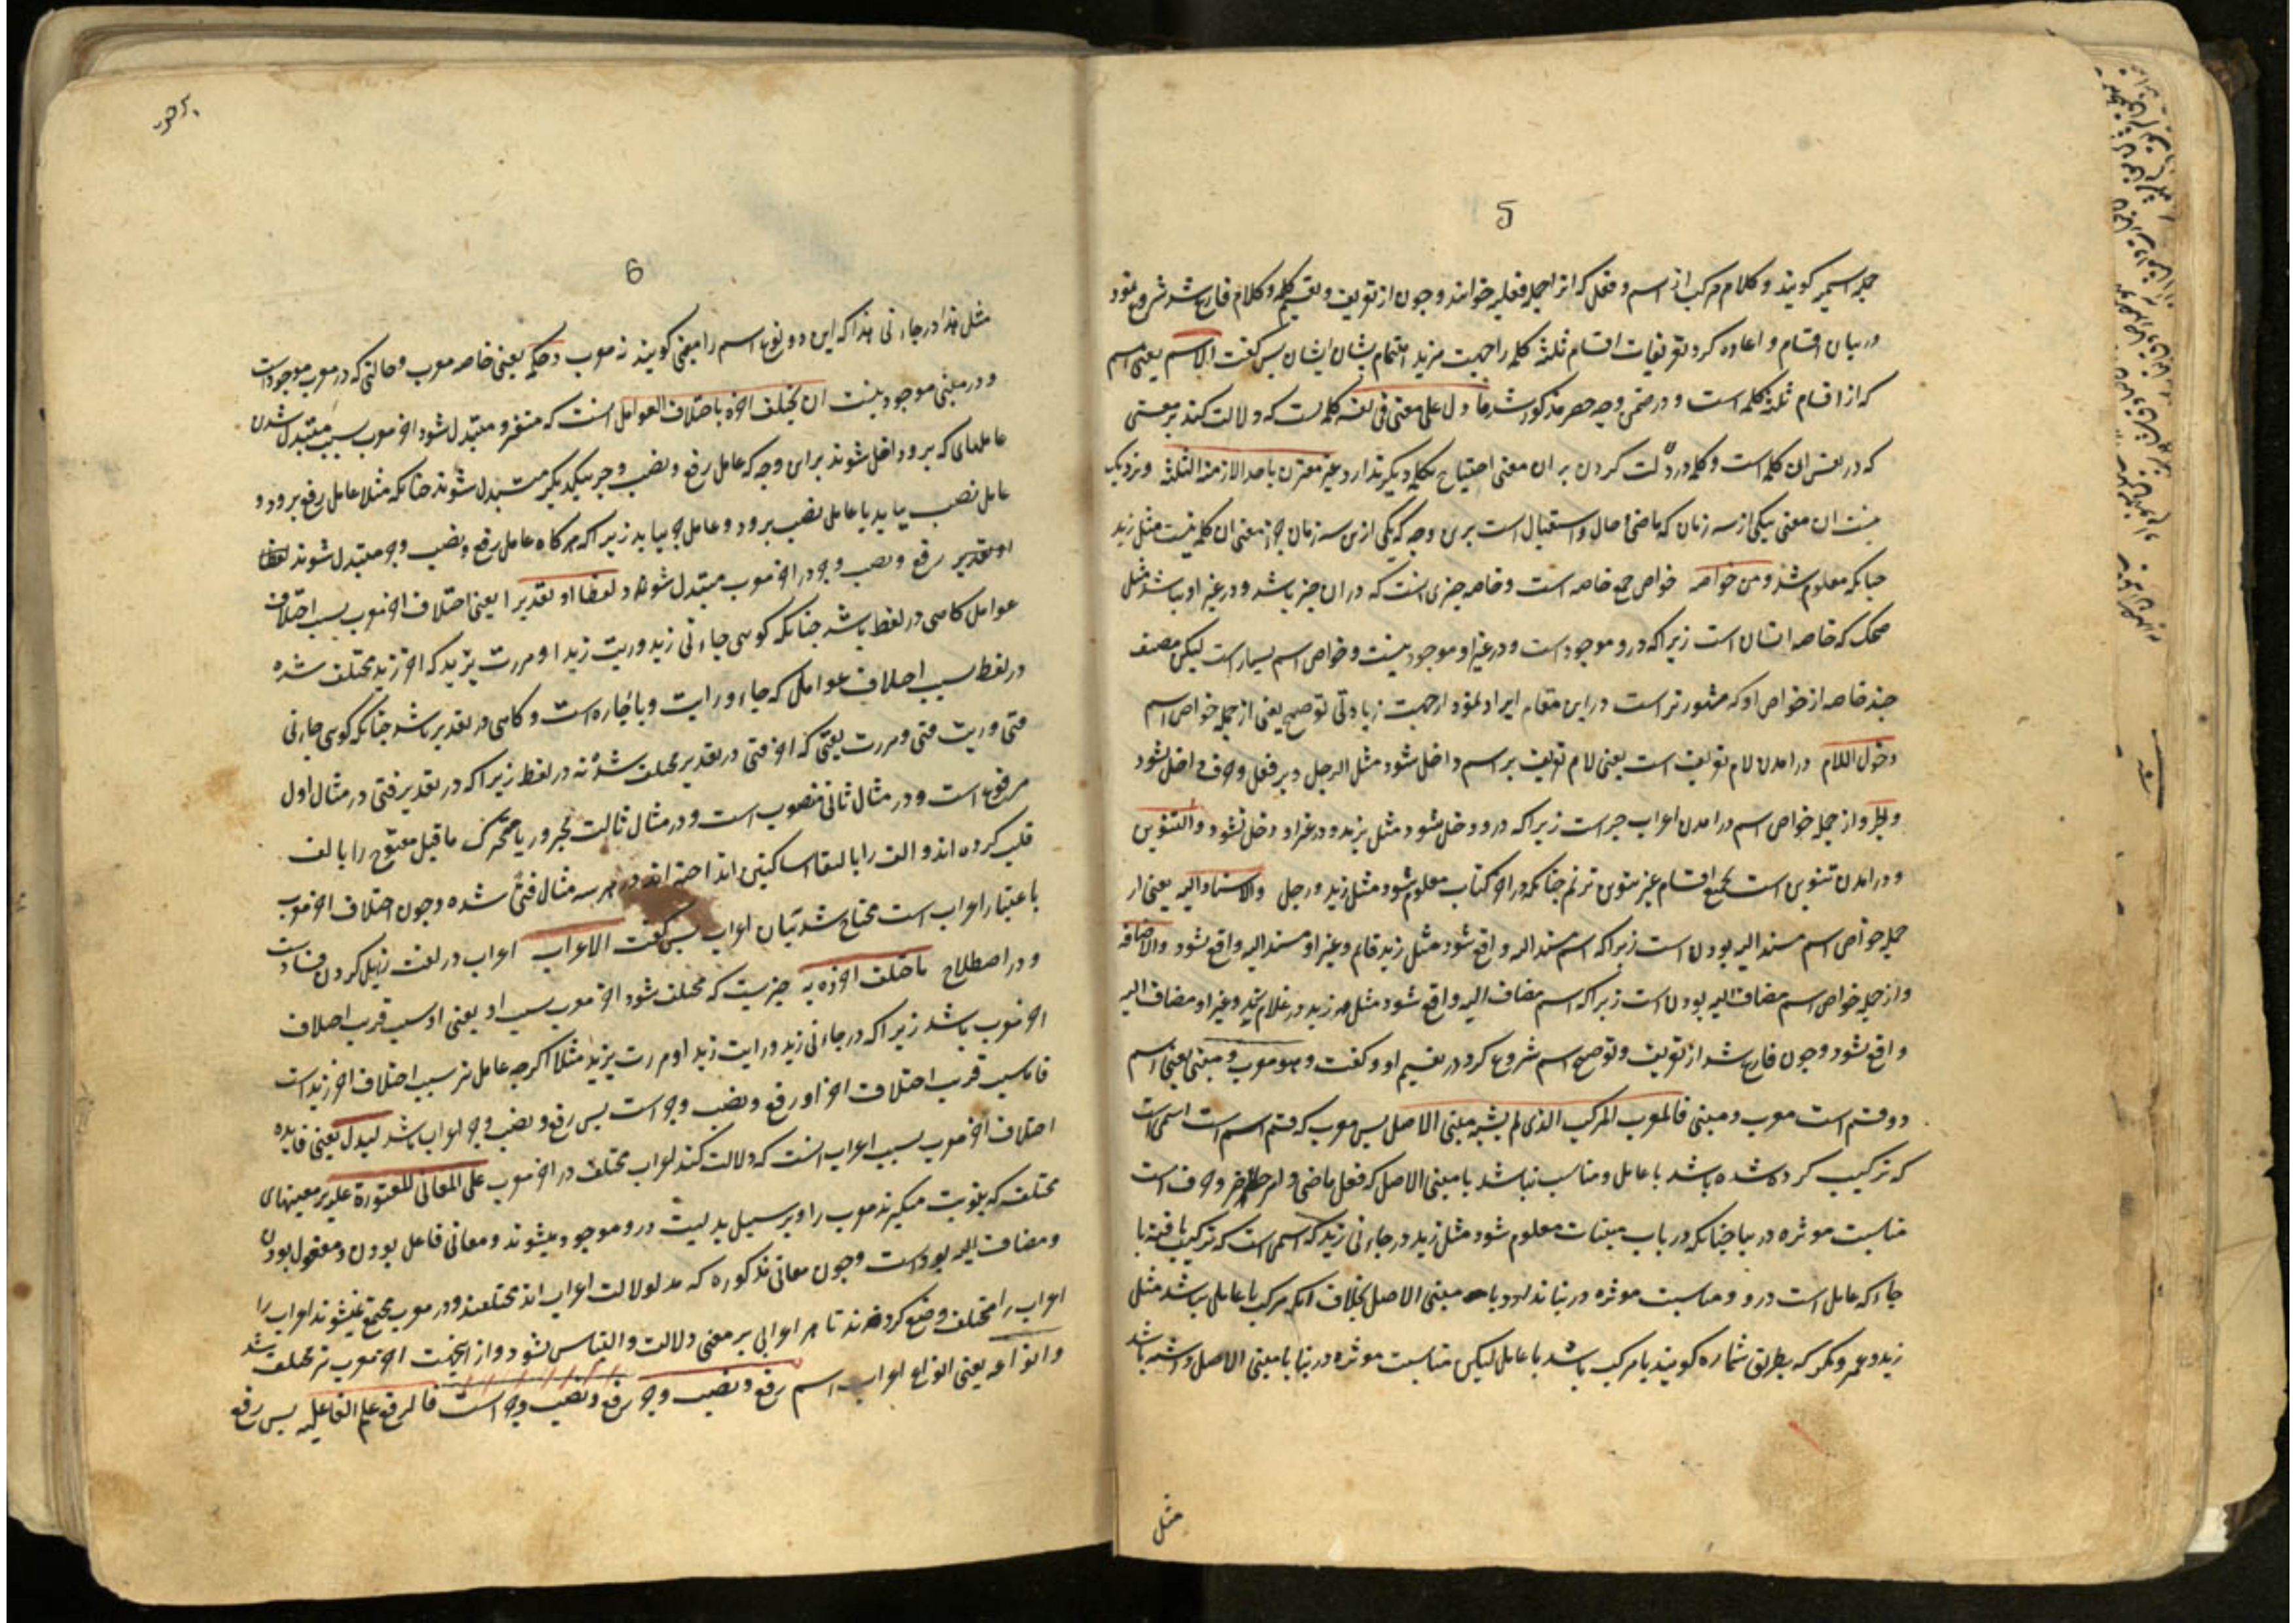 5
جمله اسمیه کویند و کلام مرکب از اسم و فعل که انرا جمله فعلیه خوانند و چون از تعریف و تقسیم کلمه و کلام فارغ شد شروع نمود
در بیان اقسام و اعاده کرد تعریفات اقسام ثلثه کلمه را جهت مزید اهتمام بشان ایشان پس کفت الاسم یعنی اسم
که از اقسام ثلثه کلمه است و در ضمن وجه حصر مذکور شد ما دل علی معنی فی نفسه کلمه ایست که دلالت کند بر معنی
که در نفس ان کلمه است و کلمه در دلت کردن بر ان معنی احتیاج بکلمه دیکر ندارد غیر مقترن باحد الازمنه الثلثه و نزدیک
نیست ان معنی بیکی از سه زمان که ماضی و حال و استقبال است برین وجه که یکی ازین سه زمان جزء معنی ان کلمه نیست مثل زید
چنانکه معلوم شد و من خواصه خواص جمع خاصه است و خاصه چیزی انست که در ان چیز باشد و در غیر او نباشد مثل
ضحک که خاصه انسان است زیرا که درو موجود است و در غیر او موجود نیست و خواص اسم بسیار است لیکن مصنف
چند خاصه از خواص او که مشهورتر است در این مقام ایراد نمود از جهت زیادتی توضیح یعنی از جمله خواص اسم
دخول اللام درامدن لام تعریف است یعنی لام تعریف بر اسم داخل شود مثل الرجل و بر فعل و حرف داخل نشود
والجر و از جمله خواص اسم درامدن اعراب جر است زیرا که درو داخل شود مثل بزید و در غیر او دخل نشود والتنوین
و درامدن تنوین است بجمیع اقسام غیر تنوین ترنم چنانکه در اخر کتاب معلوم شود مثل زید و رجل والاسناد الیه یعنی از
جمله خواص اسم مسند الیه بودن است زیرا که اسم مسند الیه واقع شود مثل زید قایم و غیر او مسند الیه واقع نشود والاضافه
و از جمله خواص اسم مضاف الیه بودن است زیرا که اسم مضاف الیه واقع شود مثل زید در غلام زید و غیر او مضاف الیه
واقع نشود و چون فارغ شد از تعریف و توضیح اسم شروع کرد در تقسیم او و کفت و هو معرب و مبنی یعنی اسم
دو قسم است معرب و مبنی فالمعرب المرکب الذی لم یشبه مبنی الاصل پس معرب که قسم اسم است اسمی است
که ترکیب کرده شده باشد با عامل و مناسب نباشد با مبنی الاصل که فعل ماضی و امر حاضر و حرف است
مناسبت موثره در بنا چنانکه در باب مبنیات معلوم شود مثل زید در جاءنی زید که اسمی است که ترکیب یافته با
جاء که عامل است درو و مناسبت موثره در بنا ندارد با مبنی الاصل بخلاف انکه مرکب با عامل نباشد مثل
زید و عمرو و بکر که بطریق شماره کویند یا مرکب باشد با عامل لیکن مناسبت موثره در بنا با مبنی الاصل داشته باشد
مثل
6
مثل هذا در جاءنی هذا که این دو نوع اسم را مبنی کویند نه معرب و حکمه یعنی خاصه معرب و حالتی که در معرب موجود است
و در مبنی موجود نیست ان یختلف اخره باختلاف العوامل انست که متغیر و متبدل شود اخر معرب بسبب متبدل شدن
عاملهای که برو داخل شوند برای وجه که عامل رفع و نصب و جر بیکدیکر متبدل شوند چنانکه مثلا عامل رفع برود و
عامل نصب بیاید یا عامل نصب برود و عامل جر بیاید زیرا که هرکاه عامل رفع و نصب و جر متبدل شوند لفظا
او تقدیر رفع و نصب و جر در اخر معرب متبدل شوند لفظا او تقدیرا یعنی اختلاف اخر معرب بسبب اختلاف
عوامل کاهی در لفظ باشد چنانکه کوئی جاءنی زید و رایت زیدا و مررت بزید که اخر زید مختلف شده
در لفظ بسبب اختلاف عوامل که جاء و رایت و باء جاره است و کاهی در تقدیر باشد چنانکه کوئی جاءنی
فتی و رایت فتی و مررت بفتی که اخر فتی در تقدیر مختلف شده نه در لفظ زیرا که در تقدیر فتی در مثال اول
مرفوع است و در مثال ثانی منصوب است و در مثال ثالث مجرور یا متحرک ماقبل مفتوح را بالف
قلب کرده اند و الف را بالتقاء ساکنین انداخته اند در هر سه مثال فتی شده و چون اختلاف اخر معرب
باعتبار اعراب است محتاج شد ببیان اعراب پس کفت الاعراب اعراب در لغت زایل کردن فساد است
و در اصطلاح ما اختلف اخره به چیزیست که مختلف شود اخر معرب بسبب او یعنی او سبب قریب اختلاف
اخر معرب باشد زیرا که در جاءنی زید و رایت زیدا و مررت بزید مثلا اکرچه عامل نیز سبب اختلاف اخر زید است
فاما سبب قریب اختلاف اخر او رفع و نصب و جر است پس رفع و نصب و جر اعراب باشد لیدل یعنی فایده
اختلاف اخر معرب بسبب اعراب انست که دلالت کند اعراب مختلف در اخر معرب علی المعانی المعتورة علیه بر معنیهای
مختلف که بنوبت میکیرند معرب را و بر سبیل بدلیت درو موجود میشوند و معانی فاعل بودن و مفعول بودن
و مضاف الیه بودن است و چون معانی مذکوره که مدلولات اعراب اند مختلفند و در معرب مجتمع نمیشوند اعراب را
اعراب را مختلف وضع کرده اند تا هر اعرابی بر معنی دلالت و التباس نشود و از این جهت اخر معرب نیز مختلف شد
و انواعه یعنی انواع اعراب اسم رفع و نصب و جر رفع و نصب و جر است فالرفع علم الفاعلیه پس رفع